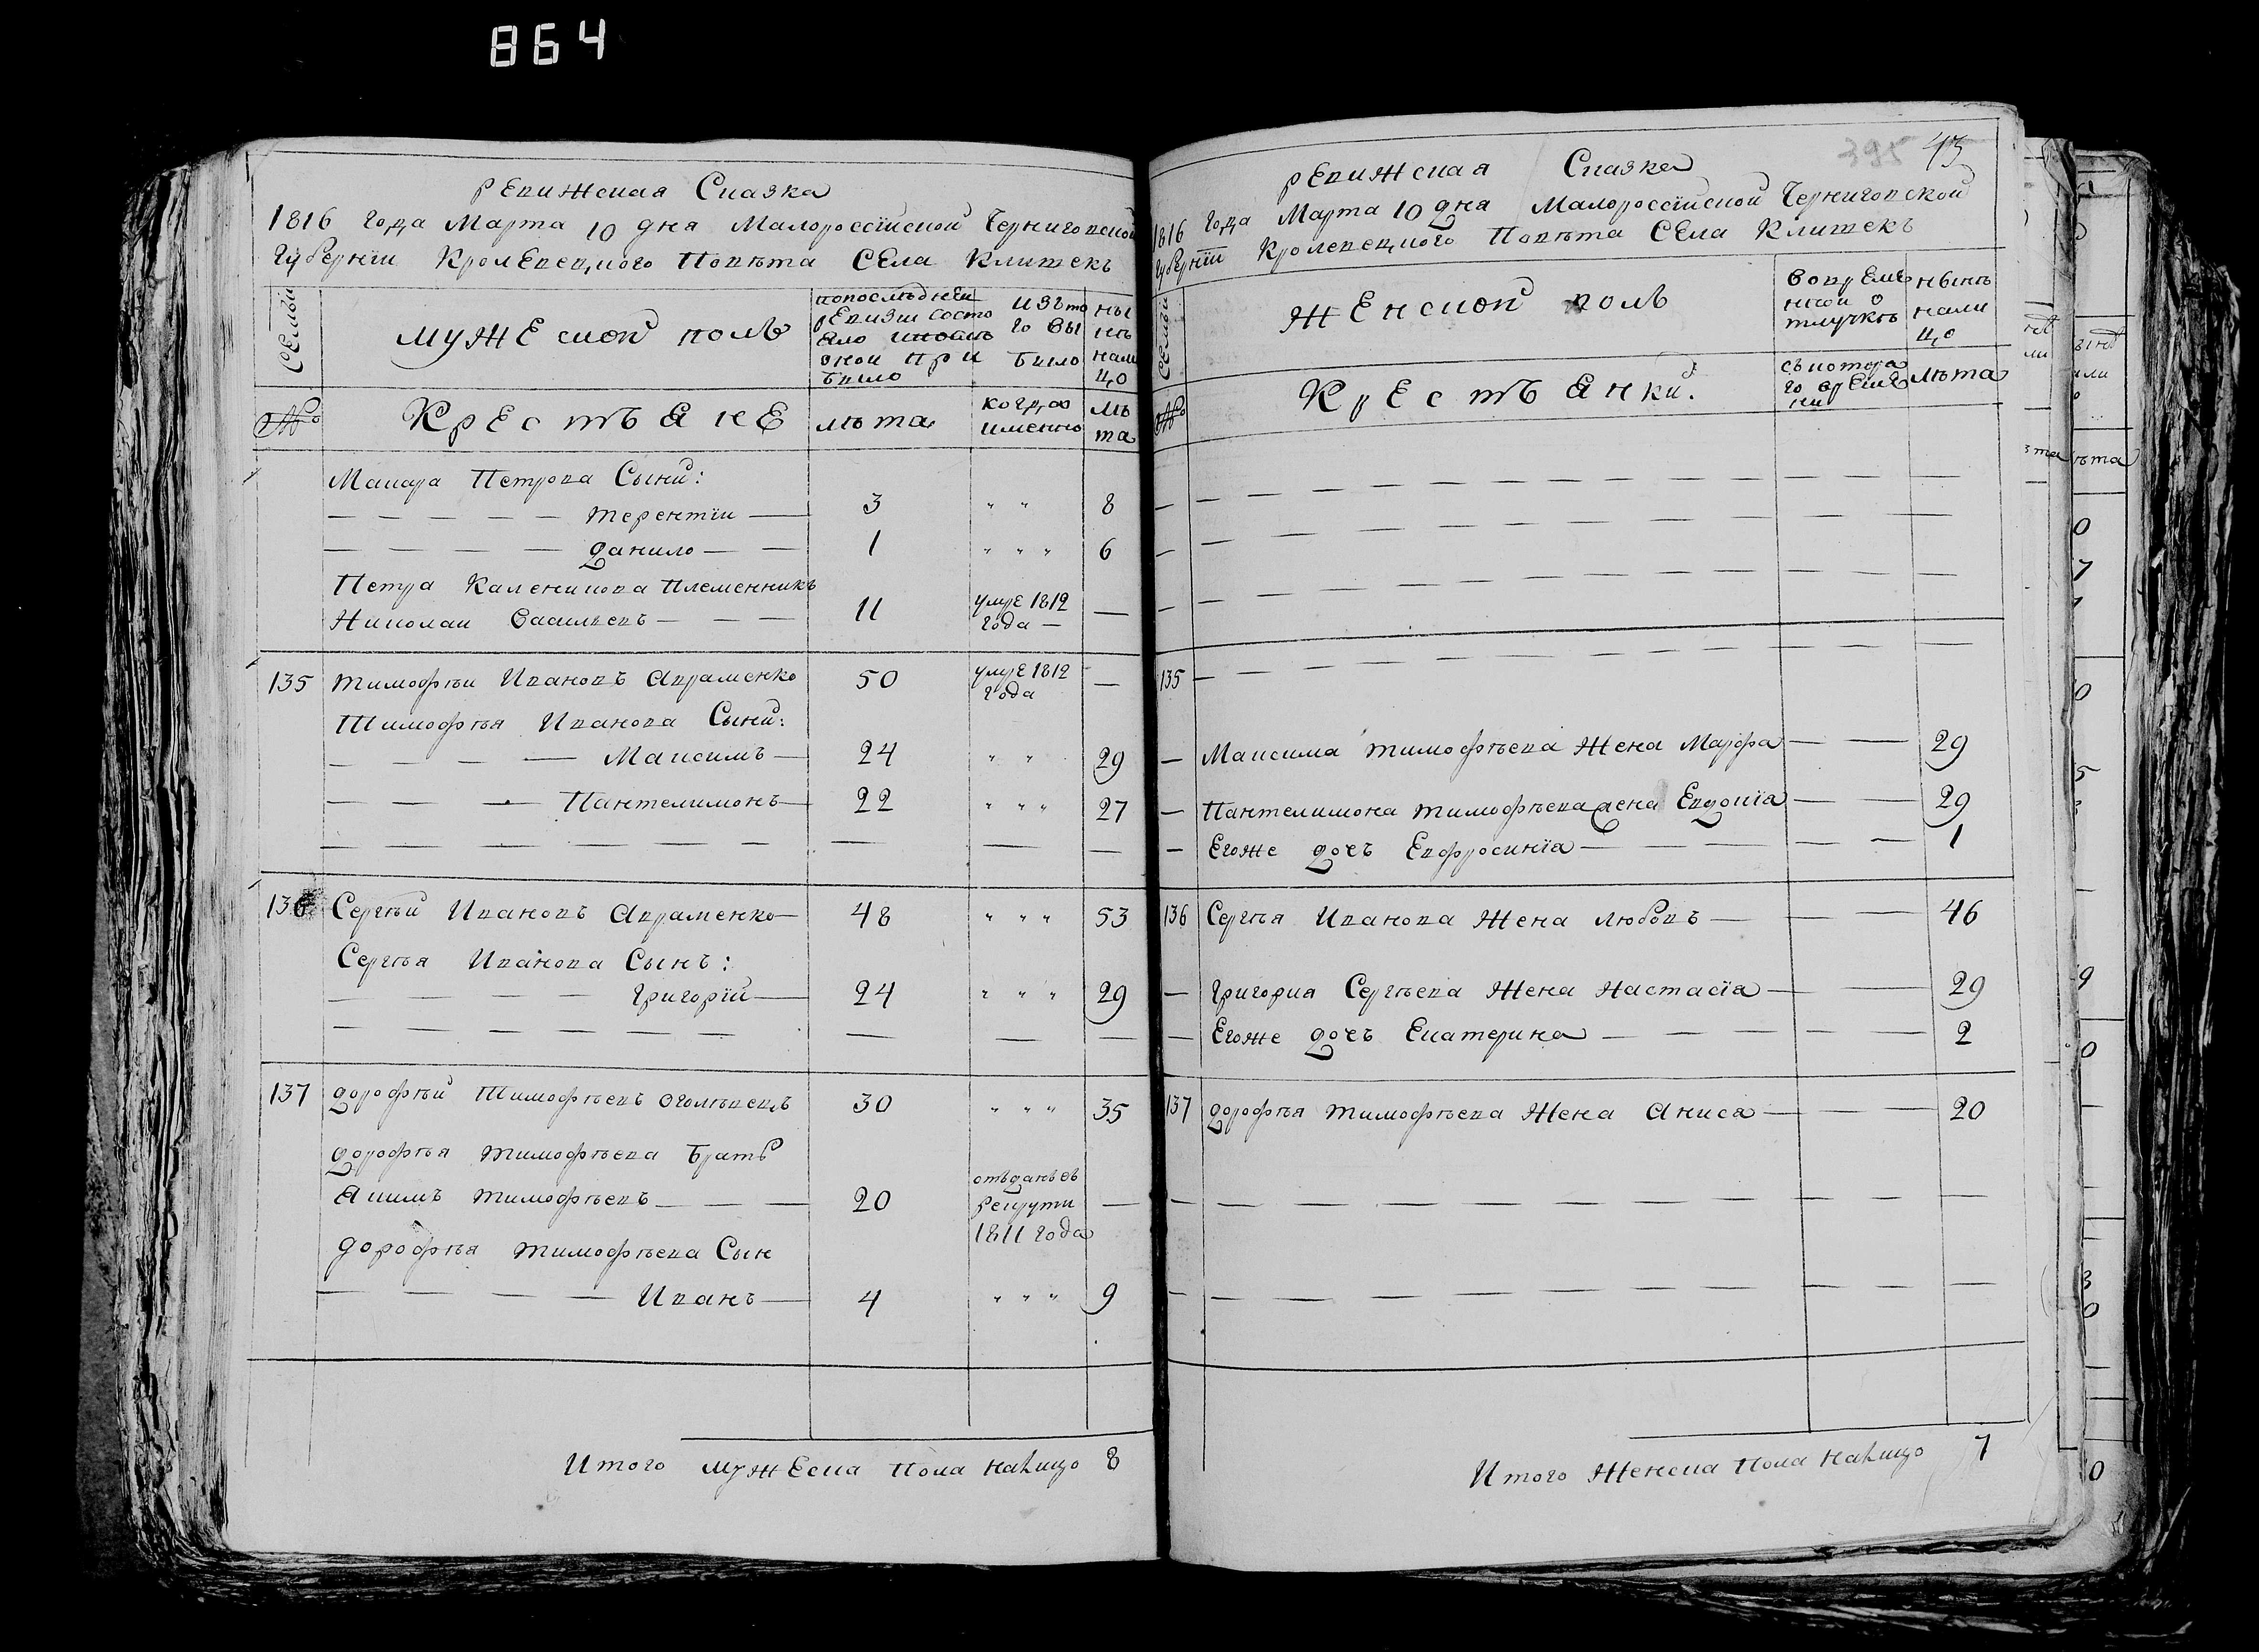 864
Ревижская Сказка
1816 года Марта 10 дня Малороссїиской Черниговской
Губернїи Кролевецкого Повѣта Села Клишекъ
Семьи
мужеской полъ
попослѣдней
ревизіи состо
яло ипослѣ
оной при
было
изъто
го вы
было
ны
нѣ
нали
цо
№
Крестьяне
лѣта
когда
имянно
лѣ
та
Макара Петрова Сыни:
Терентїи 3 " " 8
Данило 1 " " " 6
Петра Каленикова Племенникъ
Николаи Васильевъ 11 умре 1812 года
135 Тимофѣи Ивановъ Авраменко 50 умре 1812 года
Тимофѣя Иванова Сыни:
Максимъ 24 " " 29
Пантелимонъ 22 " " " 27
136 Сергѣй Ивановъ Авраменко 48 " " " 53
Сергѣя Иванова Сынъ:
Григорїй 24 " " " 29
137 Дорофѣй Тимофѣевъ Оголѣвецъ 30 " " " 35
Дорофѣя Тимофѣева Братъ
Якимъ Тимофѣевъ 20 отъданъ въ рекрути 1811 года
Дорофѣя Тимофѣева Сын
Иванъ 4 " " " 9
Итого мужеска пола налицо 8
395 43
Ревижская Сказка
1816 года Марта 10 дня Малороссїиской Черниговской
Губернїи Кролевецкого Повѣта Села Клишекъ
Семьи
женской полъ
вовреме
нной о
тлучкѣ
нынѣ
нали
цо
№
Крестьянки.
съкотора
го време
ни
лѣта
135
Максима Тимофѣева Жена Марфа 29
Пантелимона Тимофѣева жена Евдокїа 29
Егоже дочь Евфросинїа 1
136 Сергѣя Иванова Жена Любовъ 46
Григория Сергѣева Жена Настасїа 29
Егоже дочь Екатерина 2
137 Дорофѣя Тимофѣева Жена Аниса 20
Итого женска пола налицо 7